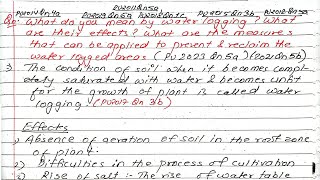 PU2014 Qn4a PU2019 Qn6a PU2020 Qn1c PU2015 Qn3b PU2012 Qn5a
Q: What do you mean by water logging? What
are their effects? What are the measures
that can be applied to prevent & reclaim the
water logged areas (PU2023 Qn5a) (2021 Qn5b)
The condition of soil when it becomes compl-
etely saturated with water & becomes unfit
for the growth of plant is called water
logging. (PU2017 Qn 3b)
Effects
1) Absence of aeration of soil in the root zone
of plant.
2) Difficulties in the process of cultivation
3) Rise of salt :- The rise of water table